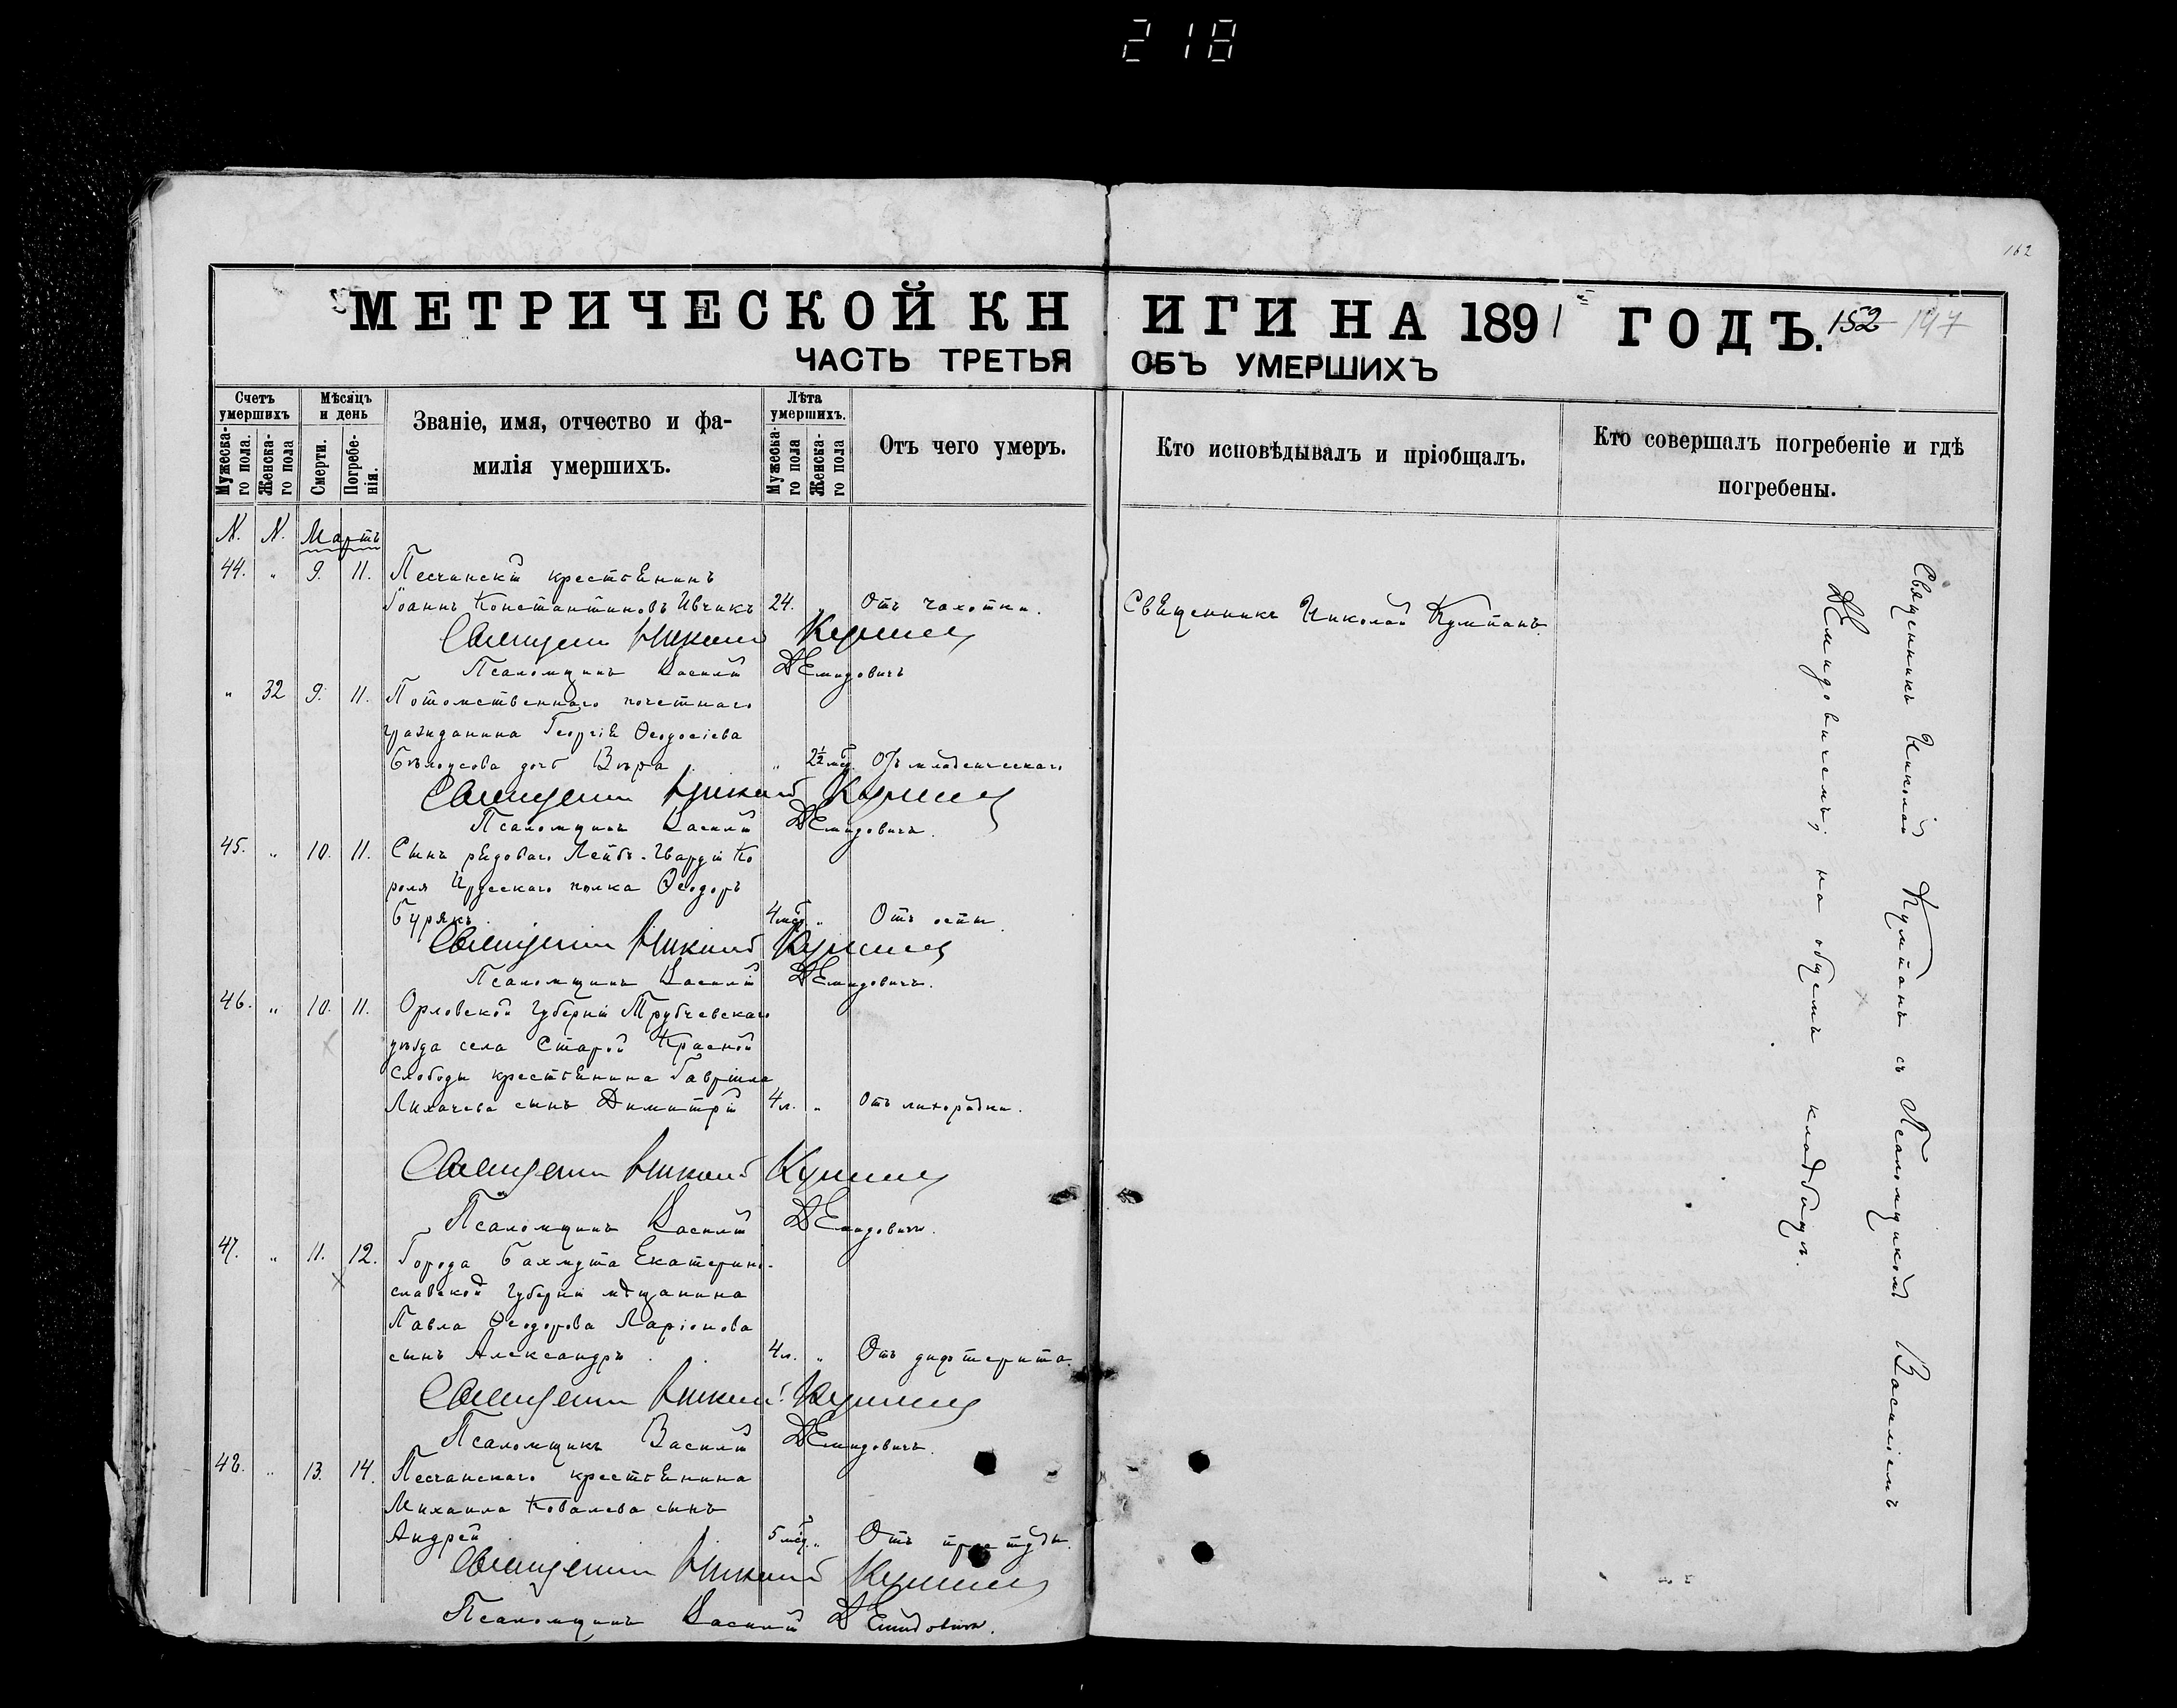 218
162
МЕТРИЧЕСКОЙ КНИГИ НА 1891 ГОДЪ. 152 147
ЧАСТЬ ТРЕТЬЯ ОБЪ УМЕРШИХЪ
Счетъ умершихъ
Мужеска-го пола.
Женска-го пола
Мѣсяцъ и день
Смерти.
Погребе-нія.
Званіе, имя, отчество и фа-
милія умершихъ.
Лѣта умершихъ.
Мужеска-го пола
Женска-го пола
Отъ чего умеръ.
Кто исповѣдывалъ и пріобщалъ.
Кто совершалъ погребеніе и гдѣ
погребены.
N. N. Мартъ
44. " 9. 11. Песчанскій крестьянинъ
Іоаннъ Константиновъ Ивчикъ 24. " Отъ чахотки. Священникъ Николай Кумпанъ.
Священникъ Николай Кумпанъ
Псаломщикъ Василій Демидовичъ
" 32 9. 11. Потомственнаго почетнаго
гражданина Георгія Ѳеодосіева
Бѣлоусова дочь Вѣра " 2½ мѣс. Отъ младенческаго
Священникъ Николай Кумпанъ
Псаломщикъ Василій Демидовичъ.
45. " 10. 11. Сынъ рядоваго Лейбъ-Гвардіи Ко
роля Прусскаго полка Ѳеодоръ
Бурякъ. 4 мѣс. " Отъ оспы.
Священникъ Николай Кумпанъ
Псаломщикъ Василій Демидовичъ.
46. " 10. 11. Орловской губерніи Трубчевскаго
уѣзда села Старой Красной
Слободы крестьянина Гавріила
Лихачева сынъ Димитрій 4 л. " Отъ лихорадки.
Священникъ Николай Кумпанъ
Псаломщикъ Василій Демидовичъ.
47. " 11. 12. Города Бахмута Екатерино-
славской губерніи мѣщанина
Павла Ѳеодорова Ларіонова
сынъ Александръ. 4 л. " Отъ дифтерита.
Священникъ Николай Кумпанъ
Псаломщикъ Василій Демидовичъ.
48. " 13. 14. Песчанскаго крестьянина
Михаила Ковалева сынъ
Андрей 5 мѣс. " Отъ простуды.
Священникъ Николай Кумпанъ
Псаломщикъ Василій Демидовичъ.
Священникъ Николай Кумпанъ съ Псаломщикомъ Василіемъ
Демидовичемъ, на общемъ кладбищѣ.